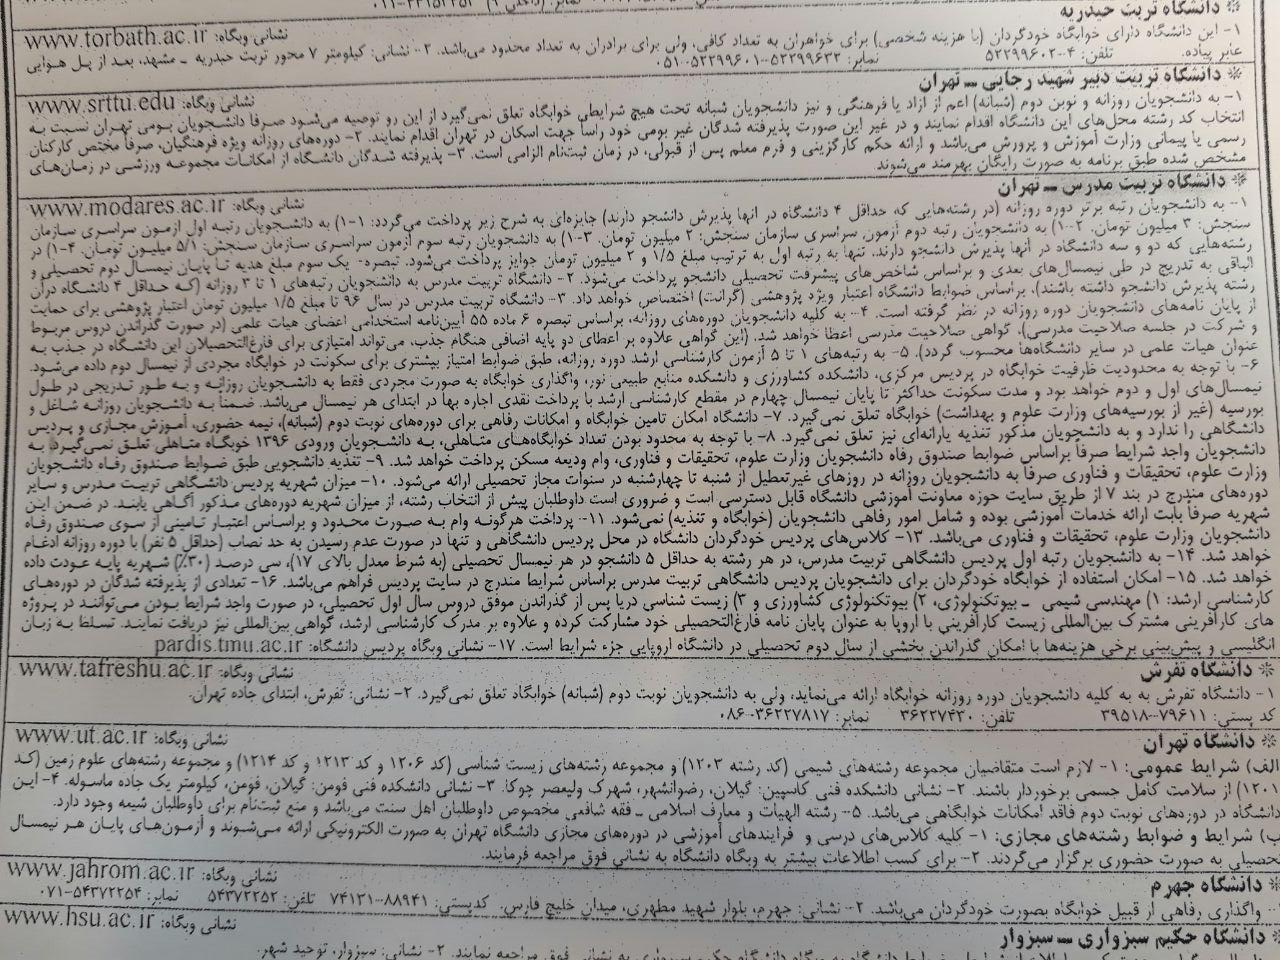 ❊ دانشگاه تربت حیدریه
نشانی وبگاه: www.torbath.ac.ir
۱- این دانشگاه دارای خوابگاه خودگردان (با هزینه شخصی) برای خواهران به تعداد کافی، ولی برای برادران به تعداد محدود می‌باشد. ۲- نشانی: کیلومتر ۷ محور تربت حیدریه ـ مشهد، بعد از پل هوایی
عابر پیاده. تلفن: ۴-۵۲۲۹۹۶۰۲ نمابر: ۵۲۲۹۹۶۳۲-۰۵۱-۵۲۲۹۹۶۰۱
❊ دانشگاه تربیت دبیر شهید رجایی ـ تهران
نشانی وبگاه: www.srttu.edu
۱- به دانشجویان روزانه و نوبت دوم (شبانه) اعم از آزاد یا فرهنگی و نیز دانشجویان شبانه تحت هیچ شرایطی خوابگاه تعلق نمی‌گیرد از این رو توصیه می‌شود صرفاً دانشجویان بومی تهران نسبت به
انتخاب کد رشته محل‌های این دانشگاه اقدام نمایند و در غیر این صورت پذیرفته شدگان غیر بومی خود راساً جهت اسکان در تهران اقدام نمایند. ۲- دوره‌های روزانه ویژه فرهنگیان، صرفاً مختص کارکنان
رسمی یا پیمانی وزارت آموزش و پرورش می‌باشد و ارائه حکم کارگزینی و فرم معلم پس از قبولی، در زمان ثبت‌نام الزامی است. ۳- پذیرفته شدگان دانشگاه از امکانات مجموعه ورزشی در زمان‌های
مشخص شده طبق برنامه به صورت رایگان بهره‌مند می‌شوند
❊ دانشگاه تربیت مدرس ـ تهران
نشانی وبگاه: www.modares.ac.ir
۱- به دانشجویان رتبه برتر دوره روزانه (در رشته‌هایی که حداقل ۴ دانشگاه در آنها پذیرش دانشجو دارند) جایزه‌ای به شرح زیر پرداخت می‌گردد: ۱-۱) به دانشجویان رتبه اول آزمون سراسری سازمان
سنجش: ۳ میلیون تومان. ۲-۱) به دانشجویان رتبه دوم آزمون سراسری سازمان سنجش: ۲ میلیون تومان. ۳-۱) به دانشجویان رتبه سوم آزمون سراسری سازمان سنجش: ۵/۱ میلیون تومان. ۴-۱) در
رشته‌هایی که دو و سه دانشگاه در آنها پذیرش دانشجو دارند، تنها به رتبه اول به ترتیب مبلغ ۱/۵ و ۲ میلیون تومان جوایز پرداخت می‌شود. تبصره- یک سوم مبلغ هدیه تا پایان نیمسال دوم تحصیلی و
الباقی به تدریج در طی نیمسال‌های بعدی و براساس شاخص‌های پیشرفت تحصیلی دانشجو پرداخت می‌شود. ۲- دانشگاه تربیت مدرس به دانشجویان رتبه‌های ۱ تا ۳ روزانه (که حداقل ۴ دانشگاه درآن
رشته پذیرش دانشجو داشته باشند)، براساس ضوابط دانشگاه اعتبار ویژه پژوهشی (گرانت) اختصاص خواهد داد. ۳- دانشگاه تربیت مدرس در سال ۹۶ تا مبلغ ۱/۵ میلیون تومان اعتبار پژوهشی برای حمایت
از پایان نامه‌های دانشجویان دوره روزانه در نظر گرفته است. ۴- به کلیه دانشجویان دوره‌های روزانه، براساس تبصره ۶ ماده ۵۵ آیین‌نامه استخدامی اعضای هیات علمی (در صورت گذراندن دروس مربوط
و شرکت در جلسه صلاحیت مدرسی)، گواهی صلاحیت مدرسی اعطا خواهد شد. (این گواهی علاوه بر اعطای دو پایه اضافی هنگام جذب، می‌تواند امتیازی برای فارغ‌التحصیلان این دانشگاه در جذب به
عنوان هیات علمی در سایر دانشگاه‌ها محسوب گردد). ۵- به رتبه‌های ۱ تا ۵ آزمون کارشناسی ارشد دوره روزانه، طبق ضوابط امتیاز بیشتری برای سکونت در خوابگاه مجردی از نیمسال دوم داده می‌شود.
۶- با توجه به محدودیت ظرفیت خوابگاه در پردیس مرکزی، دانشکده کشاورزی و دانشکده منابع طبیعی نور، واگذاری خوابگاه به صورت مجردی فقط به دانشجویان روزانه و به طور تدریجی در طول
نیمسال‌های اول و دوم خواهد بود و مدت سکونت حداکثر تا پایان نیمسال چهارم در مقطع کارشناسی ارشد با پرداخت نقدی اجاره بها در ابتدای هر نیمسال می‌باشد. ضمناً به دانشجویان روزانه شاغل و
بورسیه (غیر از بورسیه‌های وزارت علوم و بهداشت) خوابگاه تعلق نمی‌گیرد. ۷- دانشگاه امکان تامین خوابگاه و امکانات رفاهی برای دوره‌های نوبت دوم (شبانه)، نیمه حضوری، آموزش مجازی و پردیس
دانشگاهی را ندارد و به دانشجویان مذکور تغذیه یارانه‌ای نیز تعلق نمی‌گیرد. ۸- با توجه به محدود بودن تعداد خوابگاه‌های متاهلی، به دانشجویان ورودی ۱۳۹۶ خوبگاه متاهلی تعلق نمی‌گیرد به
دانشجویان واجد شرایط صرفاً براساس ضوابط صندوق رفاه دانشجویان وزارت علوم، تحقیقات و فناوری، وام ودیعه مسکن پرداخت خواهد شد. ۹- تغذیه دانشجویی طبق ضوابط صندوق رفاه دانشجویان
وزارت علوم، تحقیقات و فناوری صرفاً به دانشجویان روزانه در روزهای غیرتعطیل از شنبه تا چهارشنبه در سنوات مجاز تحصیلی ارائه می‌شود. ۱۰- میزان شهریه پردیس دانشگاهی تربیت مدرس و سایر
دوره‌های مندرج در بند ۷ از طریق سایت حوزه معاونت آموزشی دانشگاه قابل دسترسی است و ضروری است داوطلبان پیش از انتخاب رشته، از میزان شهریه دوره‌های مذکور آگاهی یابند. در ضمن این
شهریه صرفاً بابت ارائه خدمات آموزشی بوده و شامل امور رفاهی دانشجویان (خوابگاه و تغذیه) نمی‌شود. ۱۱- پرداخت هرگونه وام به صورت محدود و براساس اعتبار تامینی از سوی صندوق رفاه
دانشجویان وزارت علوم، تحقیقات و فناوری می‌باشد. ۱۳- کلاس‌های پردیس خودگردان دانشگاه در محل پردیس دانشگاهی و تنها در صورت عدم رسیدن به حد نصاب (حداقل ۵ نفر) با دوره روزانه ادغام
خواهد شد. ۱۴- به دانشجویان رتبه اول پردیس دانشگاهی تربیت مدرس، در هر رشته به حداقل ۵ دانشجو در هر نیمسال تحصیلی (به شرط معدل بالای ۱۷)، سی درصد (۳۰٪) شهریه پایه عودت داده
خواهد شد. ۱۵- امکان استفاده از خوابگاه خودگردان برای دانشجویان پردیس دانشگاهی تربیت مدرس براساس شرایط مندرج در سایت پردیس فراهم می‌باشد. ۱۶- تعدادی از پذیرفته شدگان در دوره‌های
کارشناسی ارشد: ۱) مهندسی شیمی ـ بیوتکنولوژی، ۲) بیوتکنولوژی کشاورزی و ۳) زیست شناسی دریا پس از گذراندن موفق دروس سال اول تحصیلی، در صورت واجد شرایط بودن می‌توانند در پروژه
های کارآفرینی مشترک بین‌المللی زیست کارآفرینی با اروپا به عنوان پایان نامه فارغ‌التحصیلی خود مشارکت کرده و علاوه بر مدرک کارشناسی ارشد، گواهی بین‌المللی نیز دریافت نمایند. تسلط به زبان
انگلیسی و پیش‌بینی برخی هزینه‌ها با امکان گذراندن بخشی از سال دوم تحصیلی در دانشگاه اروپایی جزء شرایط است. ۱۷- نشانی وبگاه پردیس دانشگاه: pardis.tmu.ac.ir
❊ دانشگاه تفرش
نشانی وبگاه: www.tafreshu.ac.ir
۱- دانشگاه تفرش به به کلیه دانشجویان دوره روزانه خوابگاه ارائه می‌نماید، ولی به دانشجویان نوبت دوم (شبانه) خوابگاه تعلق نمی‌گیرد. ۲- نشانی: تفرش، ابتدای جاده تهران.
کد پستی: ۷۹۶۱۱-۳۹۵۱۸ تلفن: ۳۶۲۲۷۴۳۰ نمابر: ۳۶۲۲۷۸۱۷-۰۸۶
❊ دانشگاه تهران
نشانی وبگاه: www.ut.ac.ir
الف) شرایط عمومی: ۱- لازم است متقاضیان مجموعه رشته‌های شیمی (کد رشته ۱۲۰۳) و مجموعه رشته‌های زیست شناسی (کد ۱۲۰۶ و کد ۱۲۱۳ و کد ۱۲۱۴) و مجموعه رشته‌های علوم زمین (کد
۱۲۰۱) از سلامت کامل جسمی برخوردار باشند. ۲- نشانی دانشکده فنی کاسپین: گیلان، رضوانشهر، شهرک ولیعصر چوکا. ۳- نشانی دانشکده فنی فومن: گیلان، فومن، کیلومتر یک جاده ماسوله. ۴- این
دانشگاه در دوره‌های نوبت دوم فاقد امکانات خوابگاهی می‌باشد. ۵- رشته الهیات و معارف اسلامی ـ فقه شافعی مخصوص داوطلبان اهل سنت می‌باشد و منع ثبت‌نام برای داوطلبان شیعه وجود دارد.
ب) شرایط و ضوابط رشته‌های مجازی: ۱- کلیه کلاس‌های درسی و فرایندهای آموزشی در دوره‌های مجازی دانشگاه تهران به صورت الکترونیکی ارائه می‌شوند و آزمون‌های پایان هر نیمسال
تحصیلی به صورت حضوری برگزار می‌گردند. ۲- برای کسب اطلاعات بیشتر به وبگاه دانشگاه به نشانی فوق مراجعه فرمایند.
❊ دانشگاه جهرم
نشانی وبگاه: www.jahrom.ac.ir
۱- واگذاری رفاهی از قبیل خوابگاه بصورت خودگردان می‌باشد. ۲- نشانی: جهرم، بلوار شهید مطهری، میدان خلیج فارس. کدپستی: ۸۸۹۴۱-۷۴۱۳۱ تلفن: ۵۴۳۷۲۲۵۲ نمابر: ۵۴۳۷۲۲۵۴-۰۷۱
❊ دانشگاه حکیم سبزواری ـ سبزوار
نشانی وبگاه: www.hsu.ac.ir
به نشانی فوق مراجعه نمایند. ۲- نشانی: سبزوار، توحید شهر.